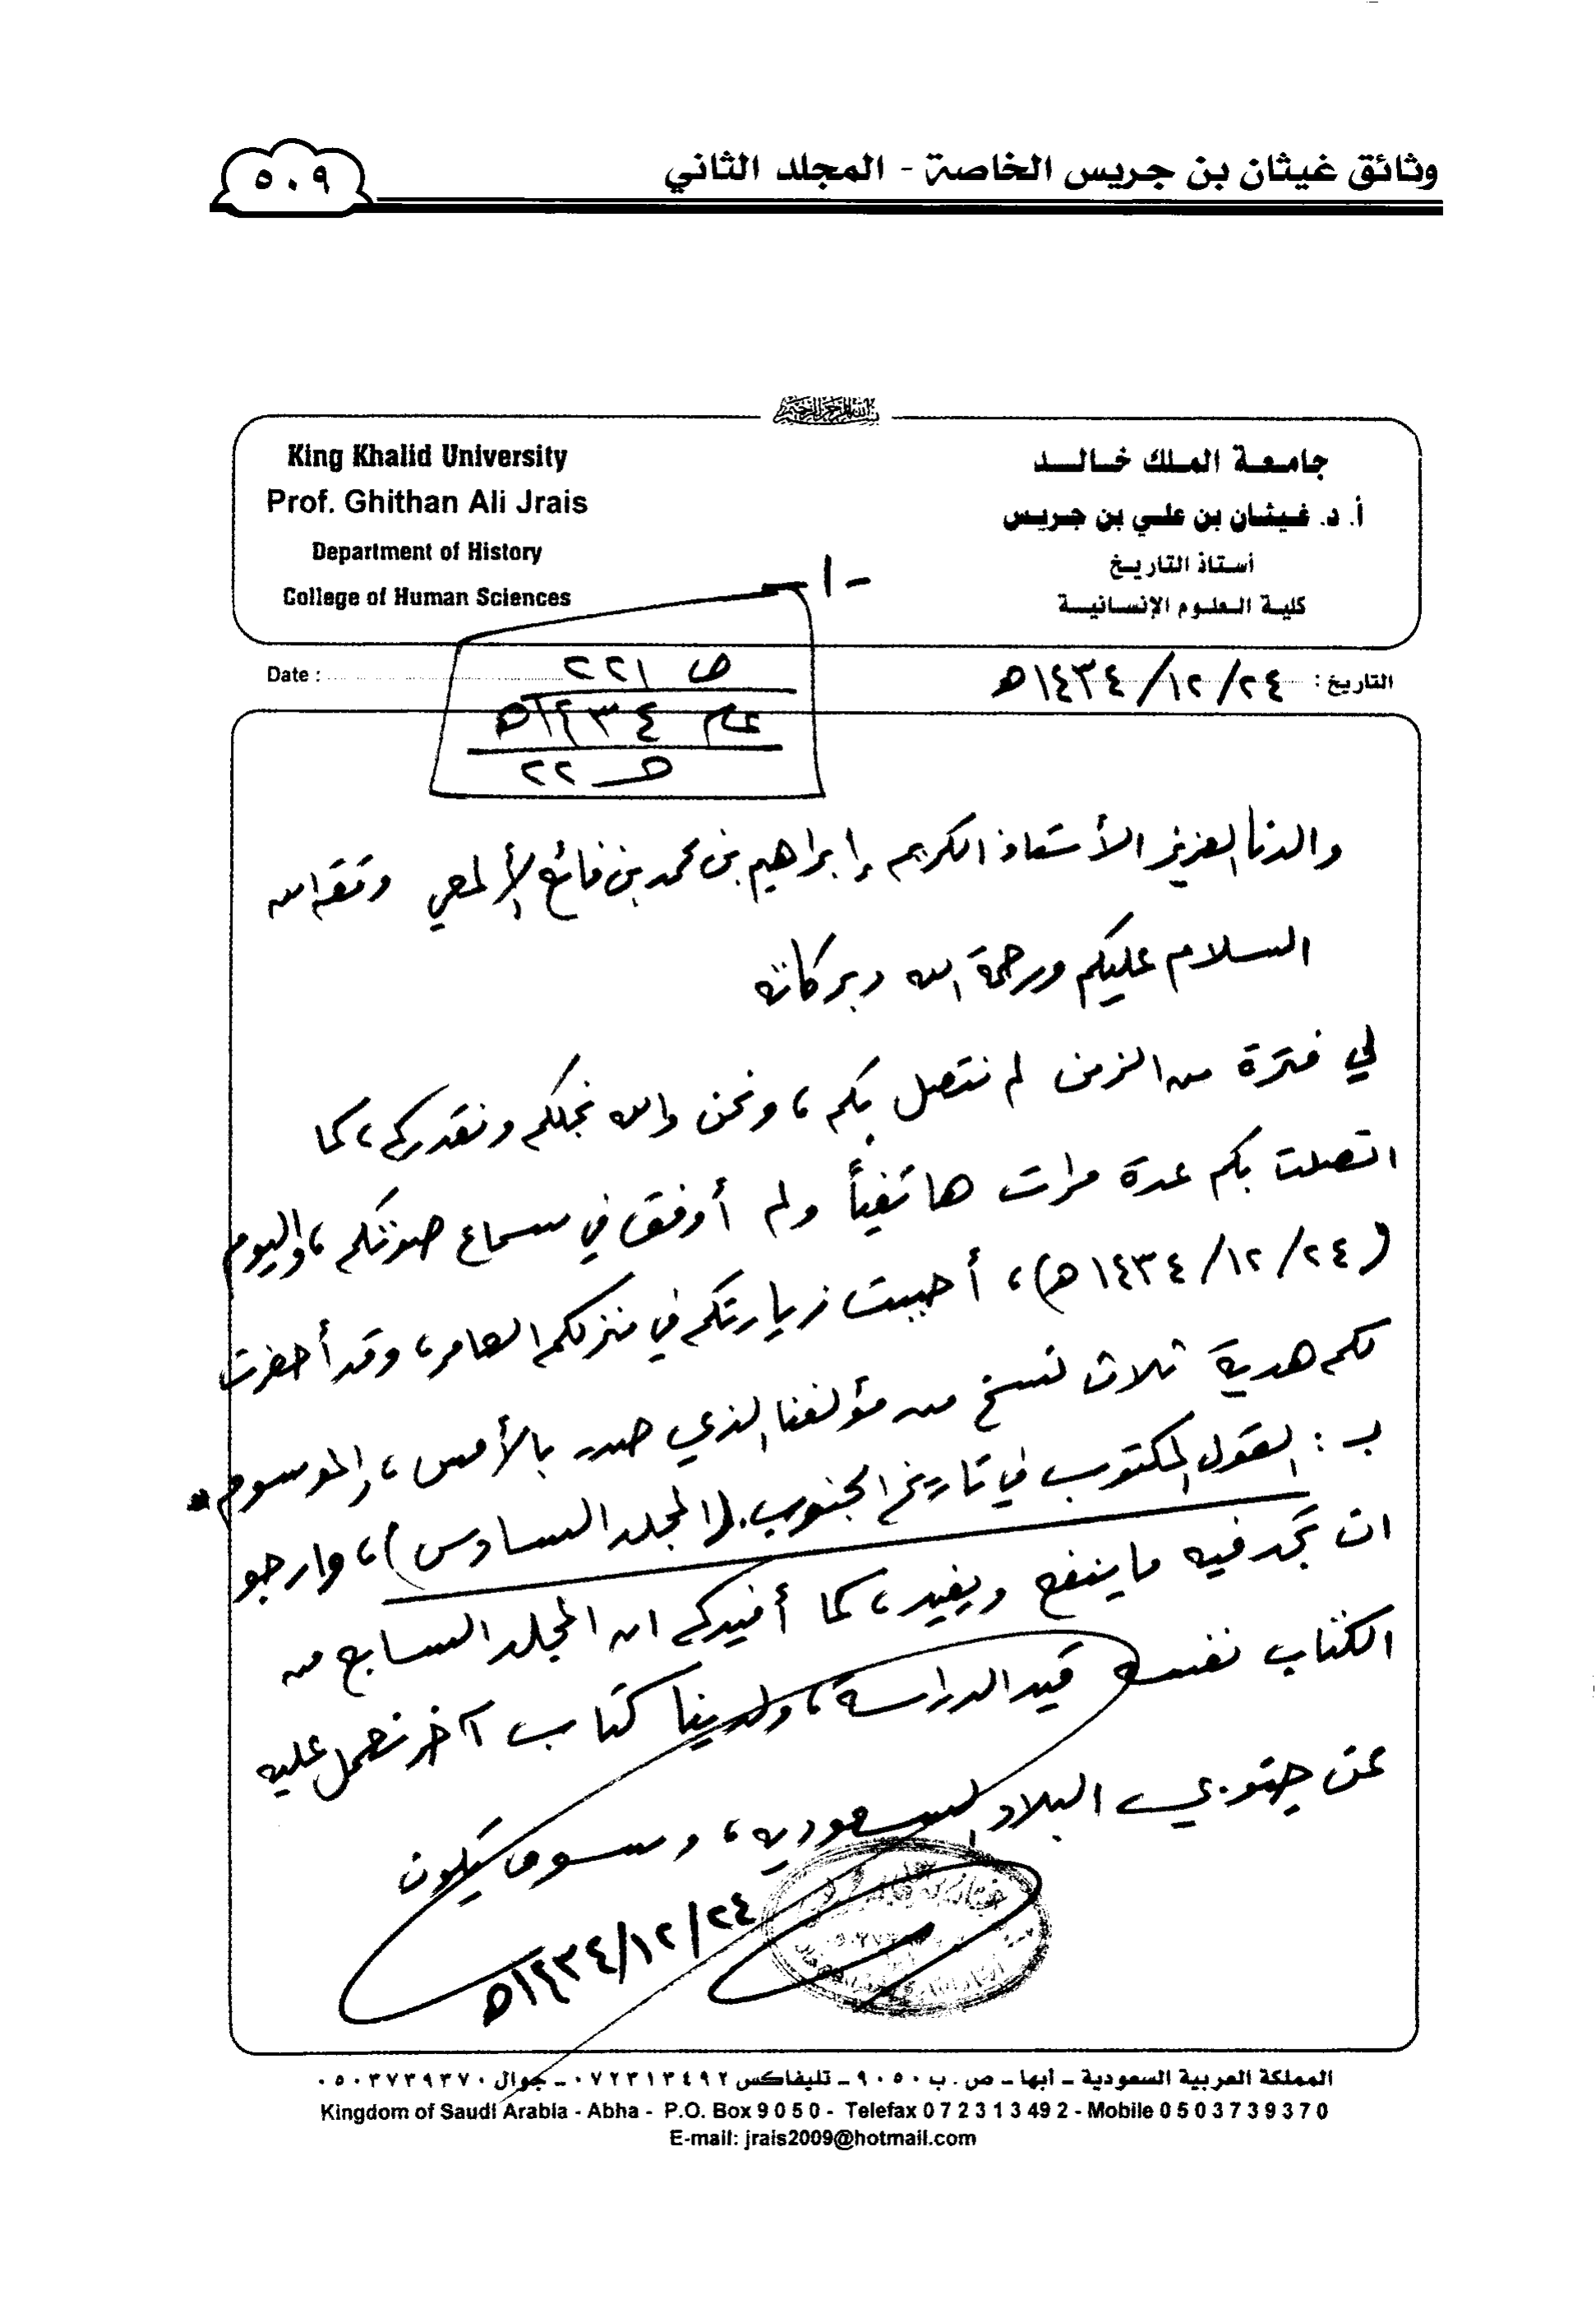 وثائق غيثان بن جريس الخاصة - المجلد الثاني
٥٠٩
جامعة الملك خالد
أ. د. غيثان بن علي بن جريس
أستاذ التاريخ
كلية العلوم الإنسانية
King Khalid University
Prof. Ghithan Ali Jrais
Department of History
College of Human Sciences
-١-
التاريخ : ٢٤/١٢/١٤٣٤هـ
Date :
ص ٢٢١
عام ١٤٣٤هـ
حـ ٢٢
والدنا العزيز الأستاذ الكريم إبراهيم بن محمد بن فائع الألمعي وفقه الله
السلام عليكم ورحمة الله وبركاته
لي فترة من الزمن لم نتصل بكم، ونحن والله نجلكم ونقدركم، كما
اتصلت بكم عدة مرات هاتفياً ولم أوفق في سماع صوتكم، واليوم
(٢٤/١٢/١٤٣٤هـ)، أحببت زيارتكم في منزلكم العامر، وقد أحضرت
لكم هدية ثلاث نسخ من مؤلفنا الذي صدر بالأمس، والموسوم
بـ : القول المكتوب في تاريخ الجنوب. (المجلد السادس)، وارجو
ان تجد فيه ما ينفع ويفيد، كما أفيدكم ان المجلد السابع من
الكتاب نفسه قيد الدراسة، ولدينا كتاب آخر نعمل عليه
عن جنوبي البلاد السعودية، وسوف يكون
٢٤/١٢/١٤٣٤هـ
المملكة العربية السعودية - أبها - ص. ب ٩٠٥٠ - تليفاكس ٠٧٢٣١٣٤٩٢ - جوال ٠٥٠٣٧٣٩٣٧٠
Kingdom of Saudi Arabia - Abha - P.O. Box 9 0 5 0 - Telefax 0 7 2 3 1 3 49 2 - Mobile 0 5 0 3 7 3 9 3 7 0
E-mail: jrais2009@hotmail.com